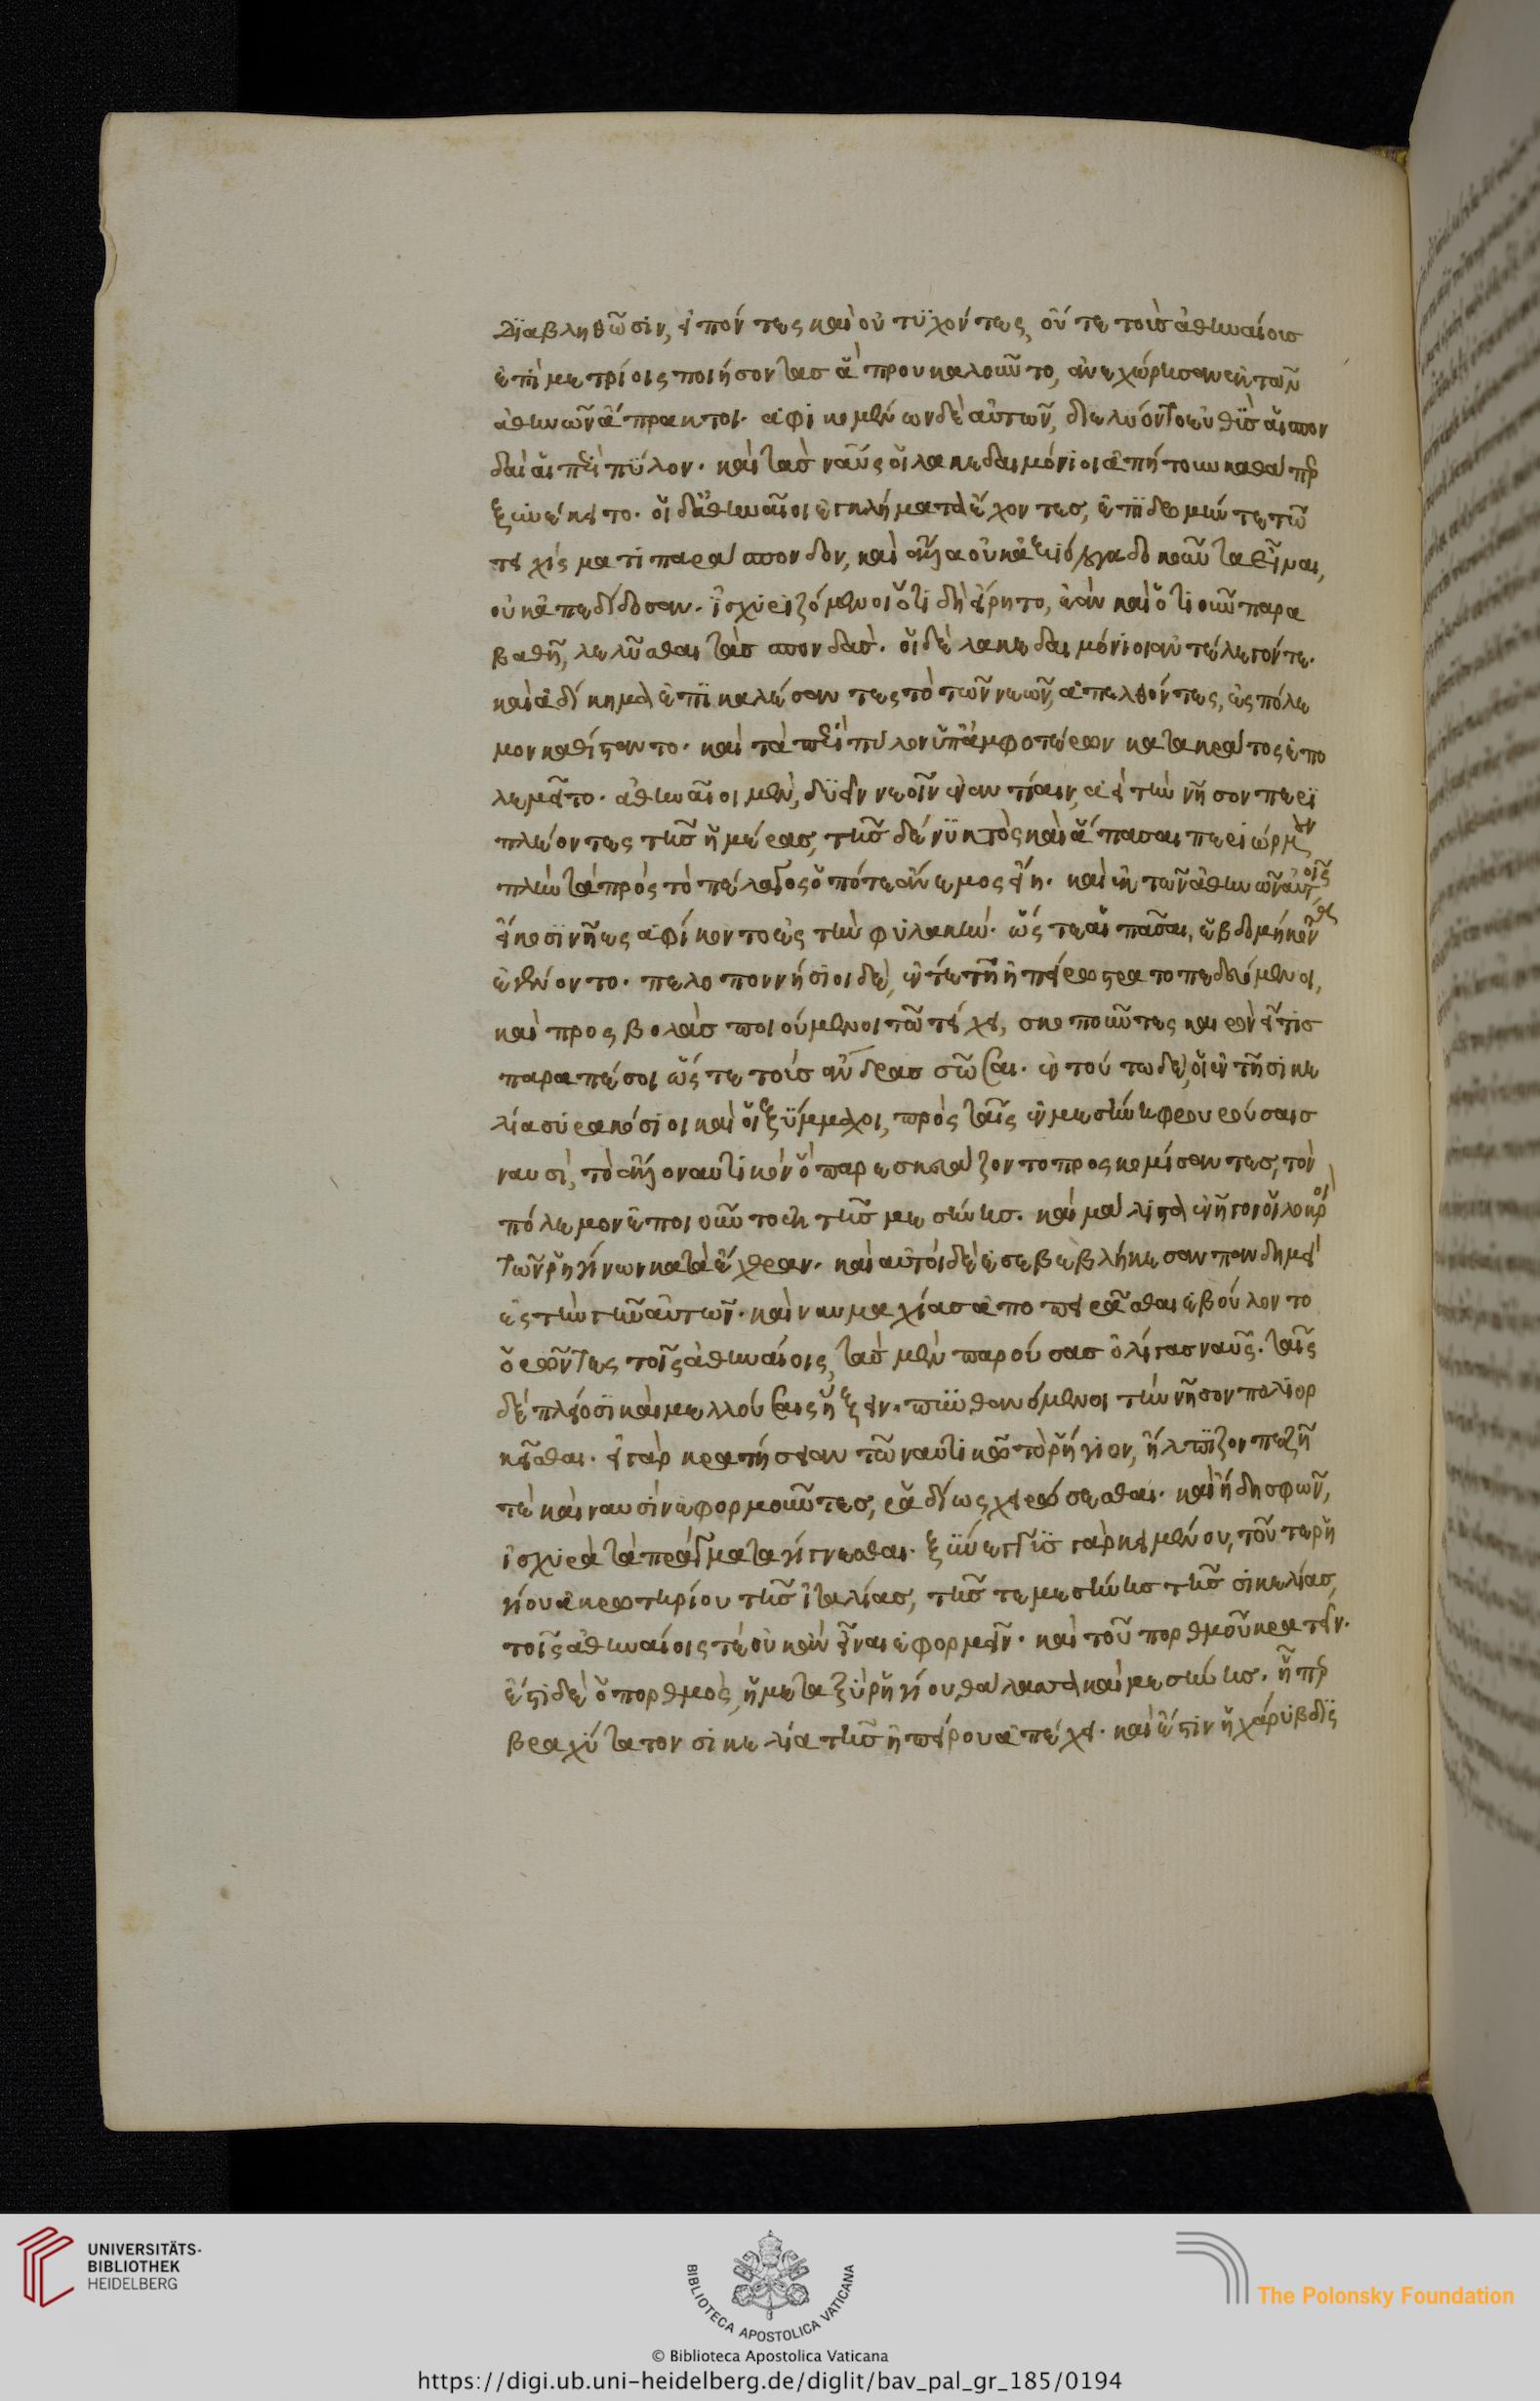 διαβληθῶσιν, εἰπόντες καὶ οὐ τυχόντες, οὔτε τοὺς ἀθηναίους
ἐπὶ μετρίοις ποιήσοντας ἃ προυκαλοῦντο, ἀνεχώρησαν ἐκ τῶν
ἀθηνῶν ἄπρακτοι. ἀφικομένων δὲ αὐτῶν, διελύοντο εὐθὺς αἱ σπον
δαὶ αἱ περὶ πύλον. καὶ τὰς ναῦς οἱ λακεδαιμόνιοι ἀπήτουν καθάπερ
ξυνέκειτο. οἱ δ' ἀθηναῖοι ἐγκλήματα ἔχοντες, ἐπιδρομήν τε τῶ
τειχίσματι παράσπονδον, καὶ ἄλλα οὐκ ἀξιόλογα δοκοῦντα εἶναι,
οὐκ ἀπεδίδοσαν. ἰσχυριζόμενοι ὅτι δὴ εἴρητο, ἐὰν καὶ ὁτιοῦν παρα
βαθῆ, λελύσθαι τὰς σπονδάς. οἱ δὲ λακεδαιμόνιοι ἀντέλεγόν τε.
καὶ ἀδίκημα ἐπικαλέσαντες τὸ τῶν νεῶν, ἀπελθόντες, ἐς πόλε
μον καθίσταντο. καὶ τὰ περὶ πύλον ὑπ' ἀμφοτέρων κατὰ κράτος ἐπο
λεμεῖτο. ἀθηναῖοι μὲν, δυεῖν νεοῖν ἐναντίαιν, ἀεὶ τὴν νῆσον περι
πλέοντες τῆς ἡμέρας, τῆς δὲ νυκτὸς καὶ ἅπασαι περιώρμουν
πλὴν τὰ πρὸς τὸ πέλαγος ὁπότε ἄνεμος εἴη. καὶ ἐκ τῶν ἀθηνῶν αὐτοῖς
εἴκοσι νῆες ἀφίκοντο ἐς τὴν φυλακήν. ὥστε αἱ πᾶσαι, ἑβδομήκοντα
ἐγένοντο. πελοποννήσιοι δὲ, ἔν τε τῆ ἠπείρω στρατοπεδευόμενοι,
καὶ προσβολὰς ποιούμενοι τῶ τείχει, σκοποῦντες καιρὸν εἴ τις
παραπέσοι ὥστε τοὺς ἄνδρας σῶσαι. ἐν τούτω δὲ, οἱ ἐν τῆ σικε
λία συρακόσιοι καὶ οἱ ξύμμαχοι, πρὸς ταῖς ἐν μεσήνη φρουρούσαις
ναυσὶ, τὸ ἄλλο ναυτικὸν ὃ παρεσκευάζοντο προσκομίσαντες, τὸν
πόλεμον ἐποιοῦντο ἐκ τῆς μεσήνης. καὶ μάλιστα ἐνῆγον οἱ λοκροὶ
τῶν ῥηγίνων κατὰ ἔχθραν. καὶ αὐτοὶ δὲ ἐσεβεβλήκεσαν πανδημεὶ
ἐς τὴν γῆν αὐτῶν. καὶ ναυμαχίας ἀποπειρᾶσθαι ἐβούλοντο
ὁρῶντες τοῖς ἀθηναίοις, τὰς μὲν παρούσας ὀλίγας ναῦς. ταῖς
δὲ πλείοσι καὶ μελλούσαις ἥξειν. πυνθανόμενοι τὴν νῆσον πολιορ
κεῖσθαι. εἰ γὰρ κρατήσειαν τῶ ναυτικῶ τὸ ῥήγιον, ἤλπιζον πεζῆ
τὲ καὶ ναυσὶν ἐφορμοῦντες, ῥαδίως χειρώσεσθαι. καὶ ἤδη σφῶν,
ἰσχυρὰ τὰ πράγματα γίγνεσθαι. ξύνεγγυς γὰρ κειμένου, τοῦ τε ῥη
γίου ἀκρωτηρίου τῆς ἰταλίας, τῆς τε μεσήνης τῆς σικελίας,
τοῖς ἀθηναίοις τὲ οὐκ ἂν εἶναι ἐφορμεῖν. καὶ τοῦ πορθμοῦ κρατεῖν.
ἔστι δὲ ὁ πορθμὸς, ἡ μεταξὺ ῥηγίου θάλασσα καὶ μεσήνης. ἧπερ
βραχύτατον σικελία τῆς ἠπείρου ἀπέχει. καὶ ἔστιν ἡ χάρυβδις
UNIVERSITÄTS-
BIBLIOTHEK
HEIDELBERG
BIBLIOTECA APOSTOLICA VATICANA
The Polonsky Foundation
© Biblioteca Apostolica Vaticana
https://digi.ub.uni-heidelberg.de/diglit/bav_pal_gr_185/0194